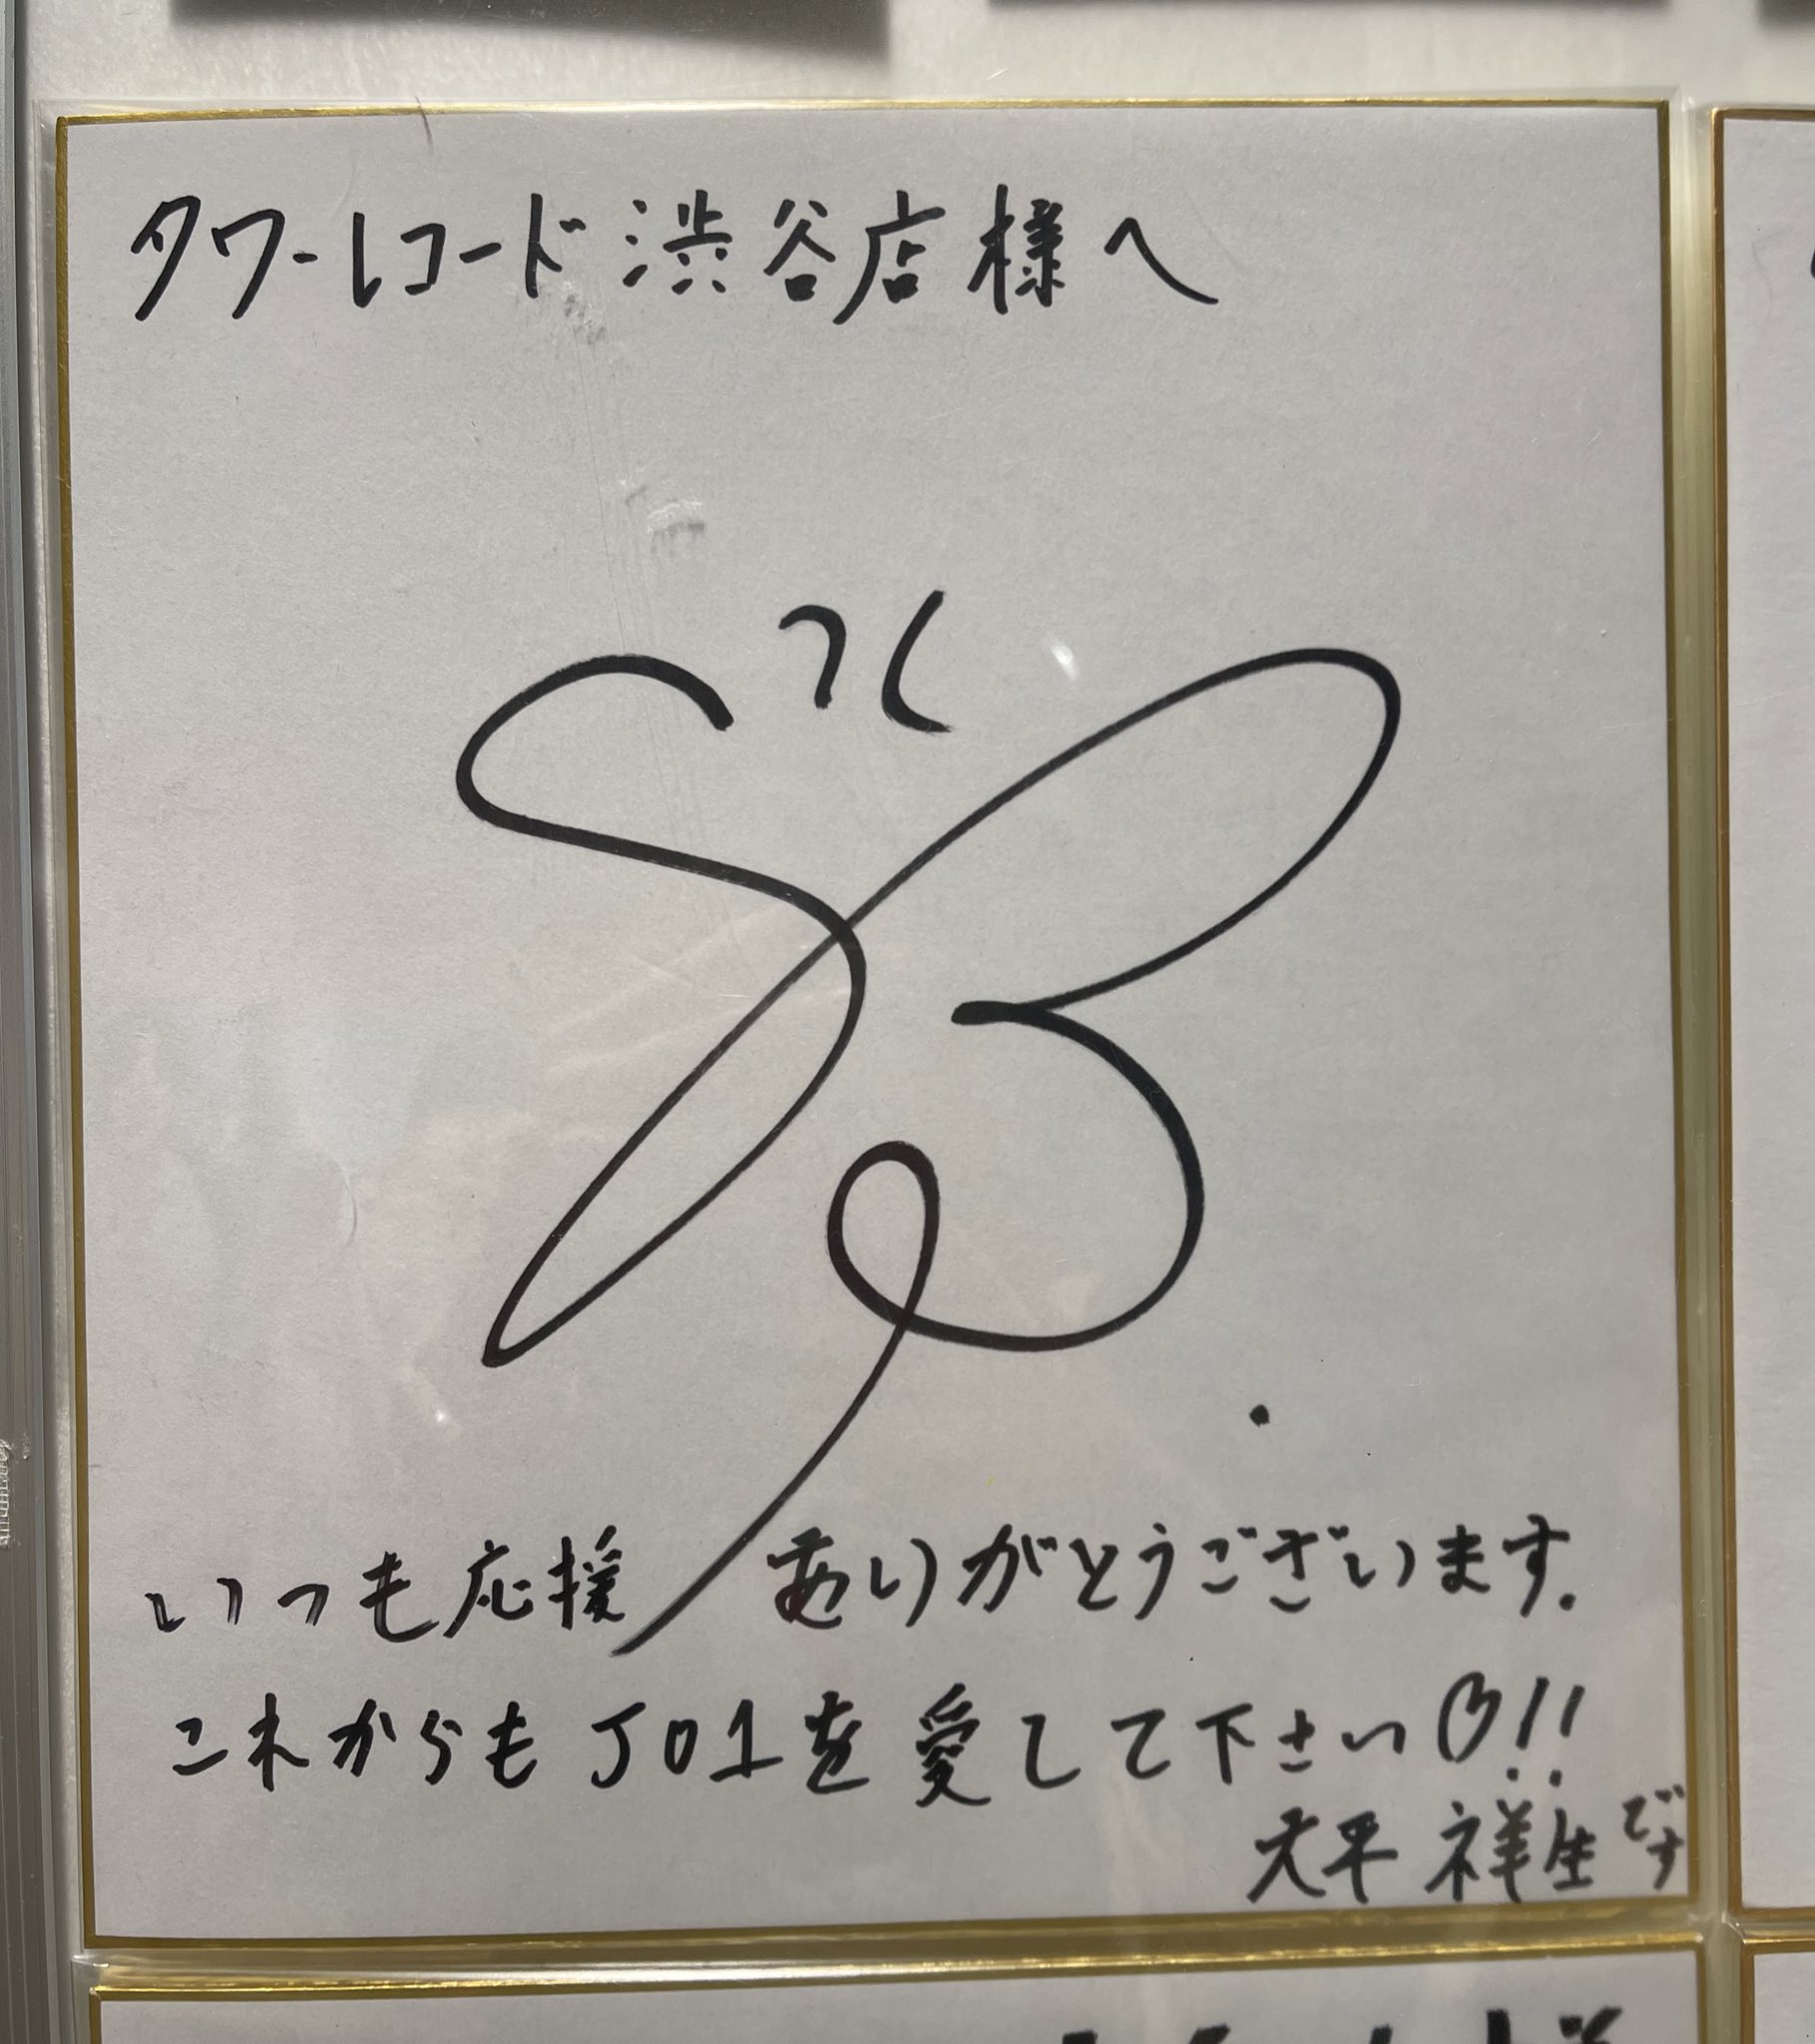 タワーレコード渋谷店様へ
いつも応援 ありがとうございます.
これからもJO1を愛して下さい!!
大平 祥生です